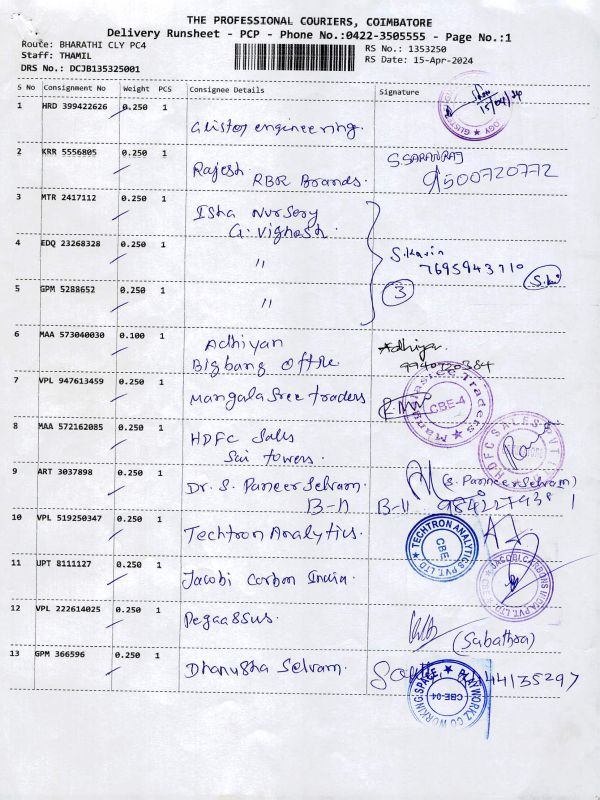 THE PROFESSIONAL COURIERS, COIMBATORE
Delivery Runsheet - PCP - Phone No.:0422-3505555 - Page No.:1
Route: BHARATHI CLY PC4
RS No.: 1353250
Staff: THAMIL
RS Date: 15-Apr-2024
DRS No.: DCJB135325001
S No Consignment No Weight PCS Consignee Details Signature
1 HRD 399422626 0.250 1
Glistor engineering. 15/04/24
2 KRR 5556805 0.250 1 S.SARANRAJ
Rajesh 9500720772
RBR Brands.
3 MTR 2417112 0.250 1 Isha Nursery
G. Vighesh.
4 EDQ 23268328 0.250 1 〃 7695943710
5 GPM 5288652 0.250 1 〃 3
6 MAA 573040030 0.100 1 Adhiyan Adhiya
Bigbang Office 9940720384
7 VPL 947613459 0.250 1
Mangala Sree traders CBE-4
8 MAA 572162085 0.250 1
HDFC Sales HDFC SALES PVT
Sai towers.
9 ART 3037898 0.250 1
Dr. S. Paneer Selvam. (S. PanneerSelvam)
B-11 B-11
10 VPL 519250347 0.250 1
Techtron Analytics. TECHTRON ANALYTICS PVT. LTD CBE
11 UPT 8111127 0.250 1
Jacobi Carbon India. JACOBI CARBONS INDIA PVT. LTD
12 VPL 222614025 0.250 1
Pegaa8sus. (Sabathra)
13 GPM 366596 0.250 1
Dhanusha Selvam. 44135297
PLAY WORKZ CO WORKING SPACE CBE-04